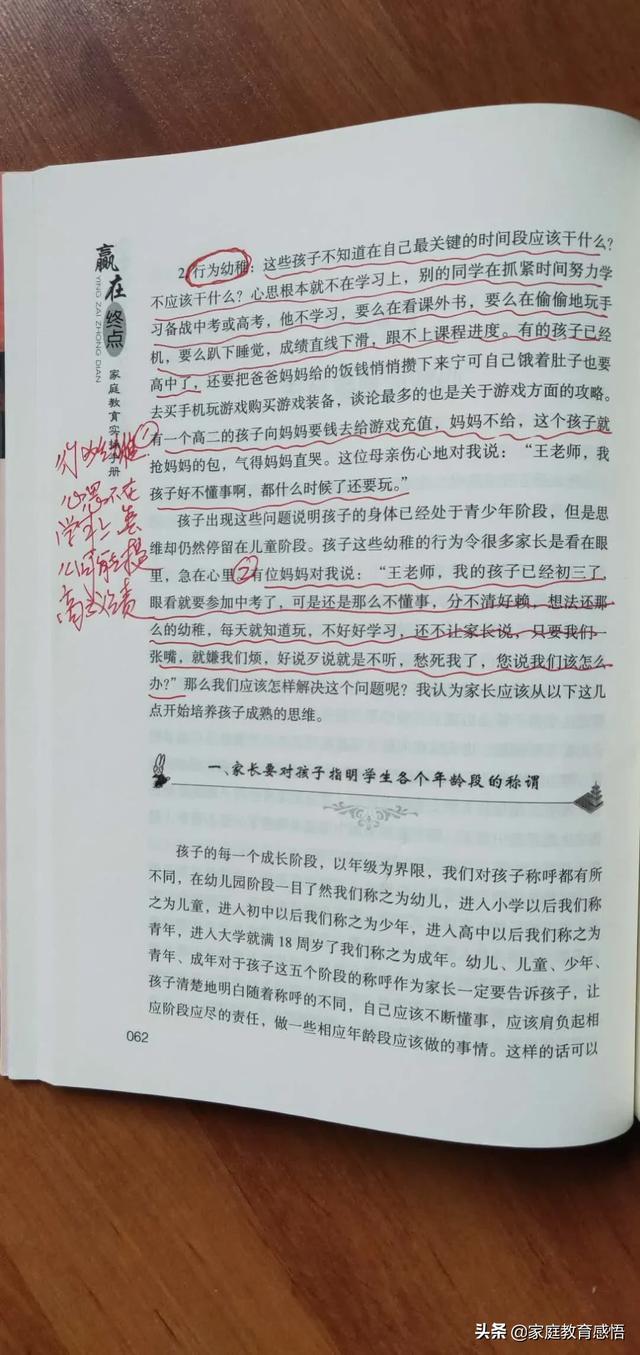 赢在终点
YING ZAI ZHONG DIAN
家庭教育实
册
2.行为幼稚：这些孩子不知道在自己最关键的时间段应该干什么？
不应该干什么？心思根本就不在学习上，别的同学在抓紧时间努力学
习备战中考或高考，他不学习，要么在看课外书，要么在偷偷地玩手
机，要么趴下睡觉，成绩直线下滑，跟不上课程进度。有的孩子已经
高中了，还要把爸爸妈妈给的饭钱悄悄攒下来宁可自己饿着肚子也要
去买手机玩游戏购买游戏装备，谈论最多的也是关于游戏方面的攻略。
有一个高二的孩子向妈妈要钱去给游戏充值，妈妈不给，这个孩子就
抢妈妈的包，气得妈妈直哭。这位母亲伤心地对我说：“王老师，我
孩子好不懂事啊，都什么时候了还要玩。”
孩子出现这些问题说明孩子的身体已经处于青少年阶段，但是思
维却仍然停留在儿童阶段。孩子这些幼稚的行为令很多家长是看在眼
里，急在心里②有位妈妈对我说：“王老师，我的孩子已经初三了，
眼看就要参加中考了，可是还是那么不懂事，分不清好赖，想法还那
么的幼稚，每天就知道玩，不好好学习，还不让家长说，只要我们一
张嘴，就嫌我们烦，好说歹说就是不听，愁死我了，您说我们该怎么
办？”那么我们应该怎样解决这个问题呢？我认为家长应该从以下这几
点开始培养孩子成熟的思维。
行为幼稚①
心思不在
学习上 怎
么可能提
高
一、家长要对孩子指明学生各个年龄段的称谓
孩子的每一个成长阶段，以年级为界限，我们对孩子称呼都有所
不同，在幼儿园阶段一目了然我们称之为幼儿，进入小学以后我们称
之为儿童，进入初中以后我们称之为少年，进入高中以后我们称之为
青年，进入大学就满 18 周岁了我们称之为成年。幼儿、儿童、少年、
青年、成年对于孩子这五个阶段的称呼作为家长一定要告诉孩子，让
孩子清楚地明白随着称呼的不同，自己应该不断懂事，应该肩负起相
应阶段应尽的责任，做一些相应年龄段应该做的事情。这样的话可以
062
头条 @家庭教育感悟